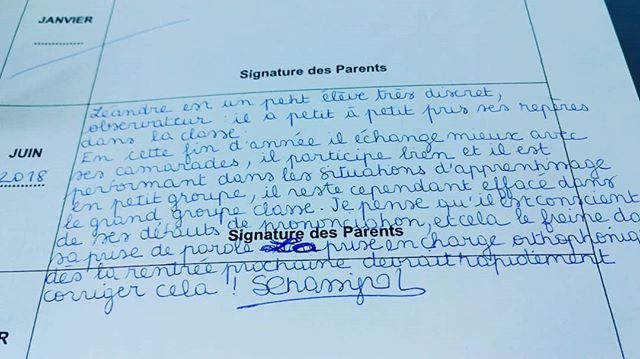 JANVIER
Signature des Parents
JUIN
2018
Léandre est un petit élève très discret,
observateur : il a petit à petit pris ses repères
dans la classe.
En cette fin d'année il échange mieux avec
ses camarades, il participe bien et il est
performant dans les situations d'apprentissage
en petit groupe, il reste cependant effacé dans
le grand groupe classe. Je pense qu'il est conscient
de ses défauts de prononciation, et cela le freine da
Signature des Parents
sa prise de parole prise en charge orthophonis
dès la rentrée prochaine devrait rapidement
corriger cela !!
R